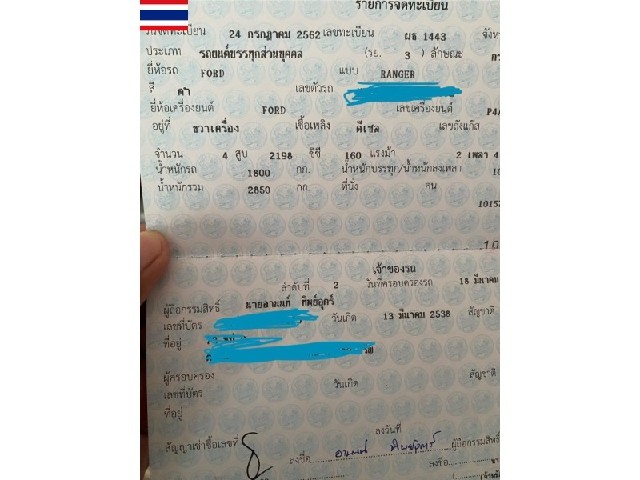 รายการจดทะเบียน
วันจดทะเบียน 24 กรกฎาคม 2562 เลขทะเบียน ผธ 1443 จังห
ประเภท รถยนต์บรรทุกส่วนบุคคล (รย. 3 ) ลักษณะ
ยี่ห้อรถ FORD แบบ RANGER
สี ดำ เลขตัวรถ
ยี่ห้อเครื่องยนต์ FORD เลขเครื่องยนต์ P4A
อยู่ที่ ขวาเครื่อง เชื้อเพลิง ดีเซล เลขถังแก๊ส
จำนวน 4 สูบ 2198 ซีซี 160 แรงม้า 2 เพลา 4
น้ำหนักรถ 1800 กก. น้ำหนักบรรทุก/น้ำหนักลงเพลา
น้ำหนักรวม 2850 กก. ที่นั่ง คน
1015
เจ้าของรถ
ลำดับที่ 2 วันที่ครอบครองรถ 18 มีนาคม
ผู้ถือกรรมสิทธิ์
เลขที่บัตร วันเกิด 13 มีนาคม 2538 สัญชาติ
ที่อยู่
ผู้ครอบครอง
เลขที่บัตร วันเกิด สัญชาติ
ที่อยู่
สัญญาเช่าซื้อเลขที่ ลงวันที่
ลงชื่อ ผู้ถือกรรมสิทธิ์
ลงชื่อ